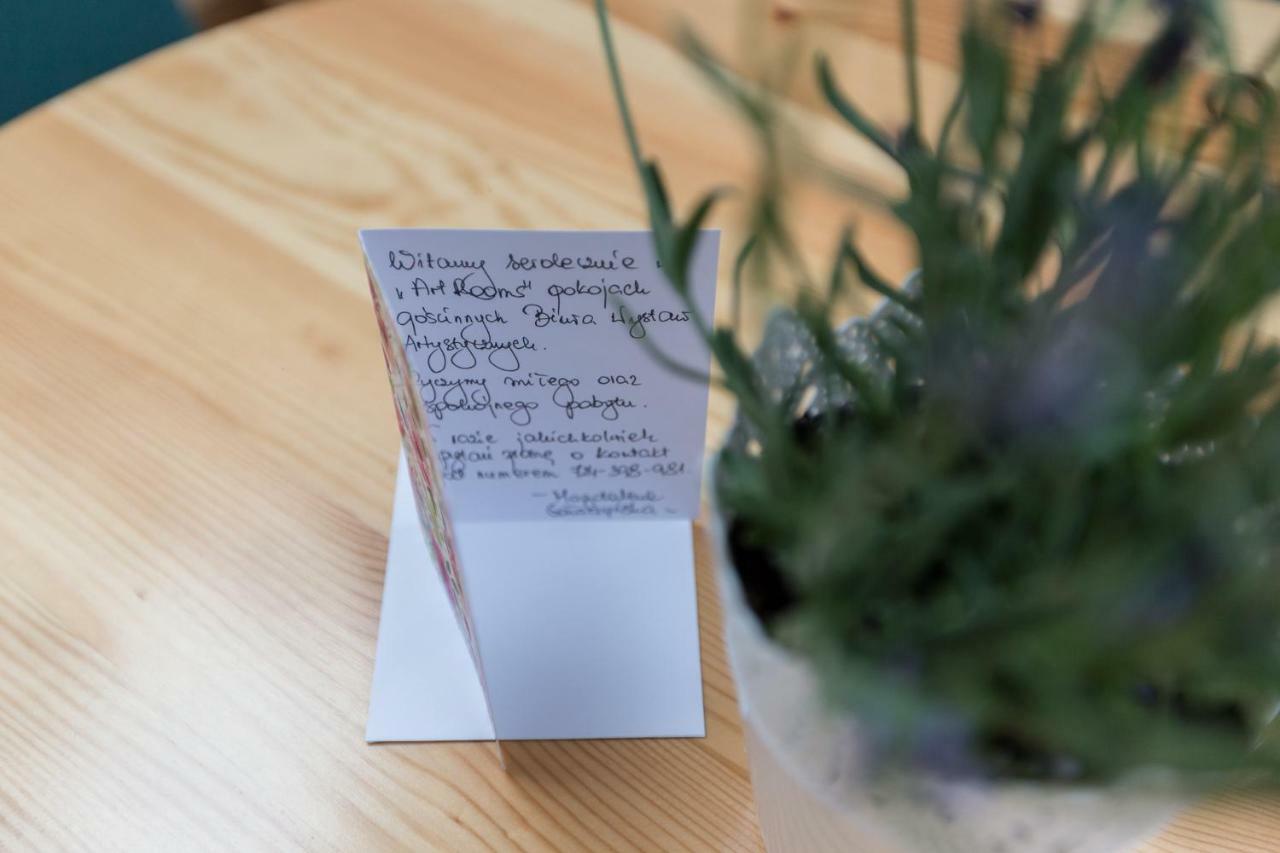 Witamy serdecznie
"Art Rooms" pokojach
gościnnych Biura Wystaw
Artystycznych.
życzymy miłego oraz
spokojnego pobytu.
razie jakichkolwiek
pytań proszę o kontakt
numerem
- Magdalena